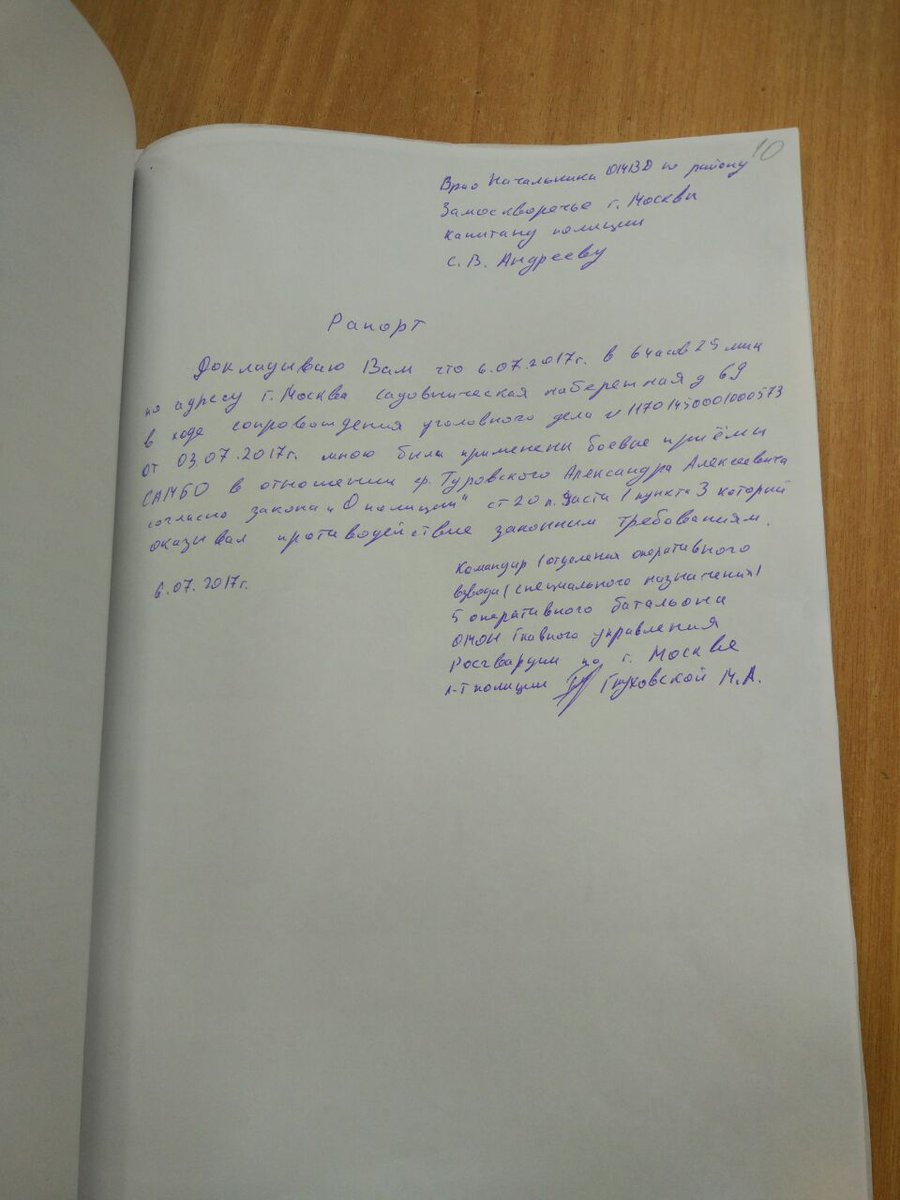 10
Врио Начальника ОМВД по району
Замоскворечье г. Москвы
капитану полиции
С.В. Андрееву
Рапорт
Докладываю Вам что 6.07.2017г. в 6 часов 25 мин
по адресу г. Москва садовническая набережная д 69
в ходе сопровождения уголовного дела № 11701450001000573
от 03.07.2017г. мною были применены боевые приёмы
САМБО в отношении гр. Туровского Александра Алексеевича
согласно закона „О полиции" ст 20 п. Части 1 пункта 3 который
оказывал противодействие законным требованиям.
6.07.2017г.
Командир 1 отделения оперативного
взвода (специального назначения)
5 оперативного батальона
ОМОН Главного управления
Росгвардии по г. Москве
л-т полиции М.А.